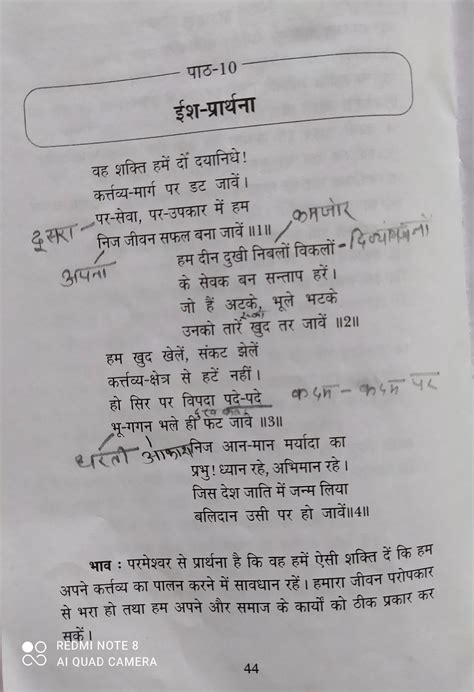 पाठ-10
ईश-प्रार्थना
वह शक्ति हमें दों दयानिधे!
कर्त्तव्य-मार्ग पर डट जावें।
पर-सेवा, पर-उपकार में हम
कमजोर
दूसरा
निज जीवन सफल बना जावें॥1॥
अपना
हम दीन दुखी निबलों विकलों
के सेवक बन सन्ताप हरें।
जो हैं अटके, भूले भटके
उनको तारें खुद तर जावें॥2॥
हम खुद खेलें, संकट झेलें
कर्त्तव्य-क्षेत्र से हटें नहीं।
हो सिर पर विपदा पदे-पदे
कदम - कदम पर
भू-गगन भले ही फट जावें॥3॥
धरती आकाश
निज आन-मान मर्यादा का
प्रभु! ध्यान रहे, अभिमान रहे।
जिस देश जाति में जन्म लिया
बलिदान उसी पर हो जावें॥4॥
भाव : परमेश्वर से प्रार्थना है कि वह हमें ऐसी शक्ति दें कि हम
अपने कर्त्तव्य का पालन करने में सावधान रहें। हमारा जीवन परोपकार
से भरा हो तथा हम अपने और समाज के कार्यों को ठीक प्रकार कर
सकें।
REDMI NOTE 8
AI QUAD CAMERA
44